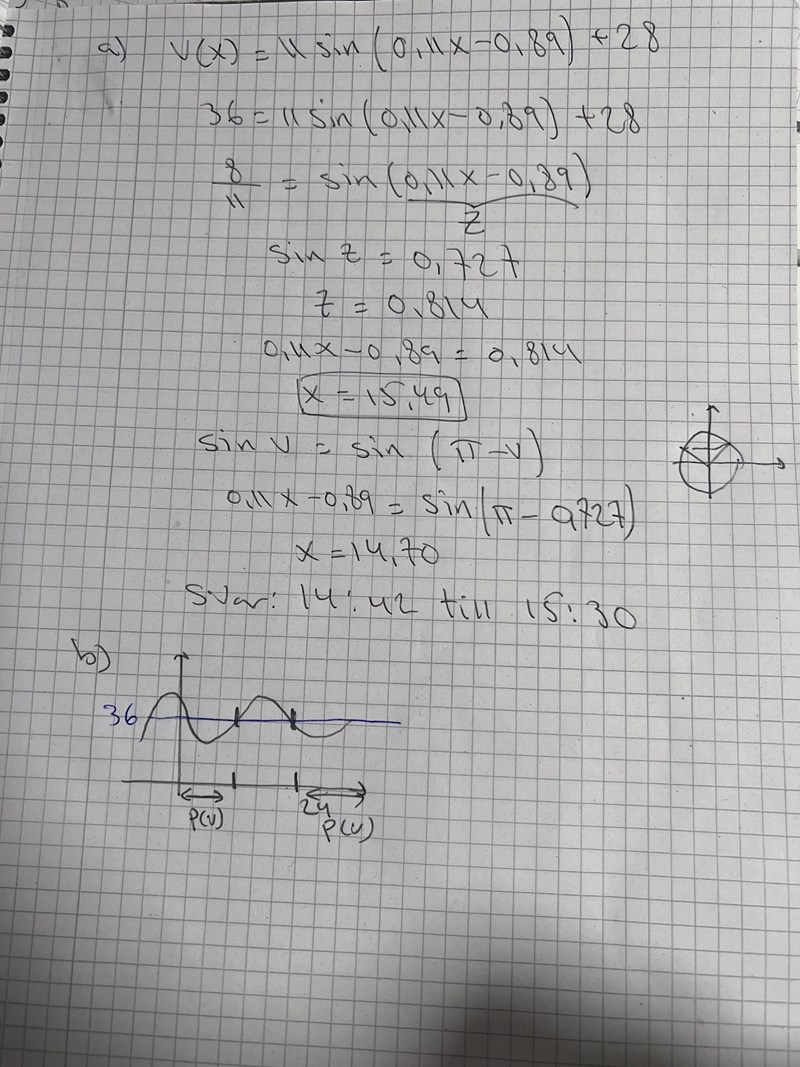 a) V(x) = 11 sin (0,11x-0,89) + 28
36 = 11 sin (0,11x-0,89) + 28
8/11 = sin (0,11x-0,89)
z
sin z = 0,727
z = 0,814
0,11x-0,89 = 0,814
x = 15,49
sin v = sin (π-v)
0,11x-0,89 = sin (π-0,727)
x = 14,70
Svar: 14:42 till 15:30
b)
36
24
P(v) P(v)